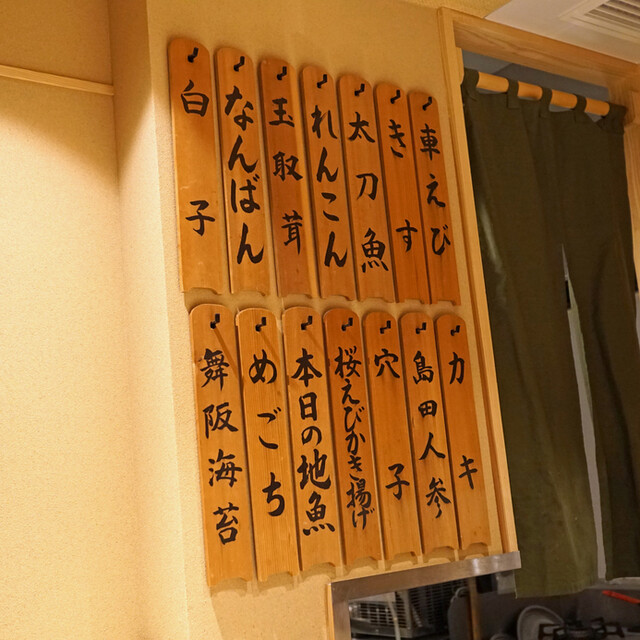 車えび
きす
太刀魚
れんこん
玉取茸
なんばん
白子
カキ
島田人参
穴子
桜えびかき揚げ
本日の地魚
めごち
舞阪海苔